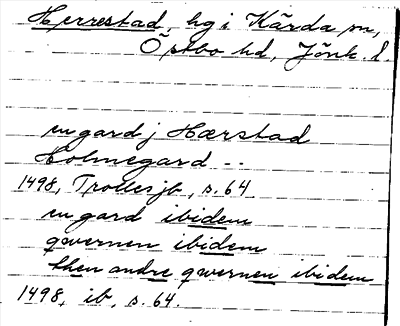 Herrestad, hg i Kärda sn,
Östbo hd, Jönk. l.
en gard j Hærstad
Holmegard --
1498, Trollesjb, s. 64
en gard ibidem
qwernen ibidem
then andre qwernen ibidem
1498, ib, s. 64.